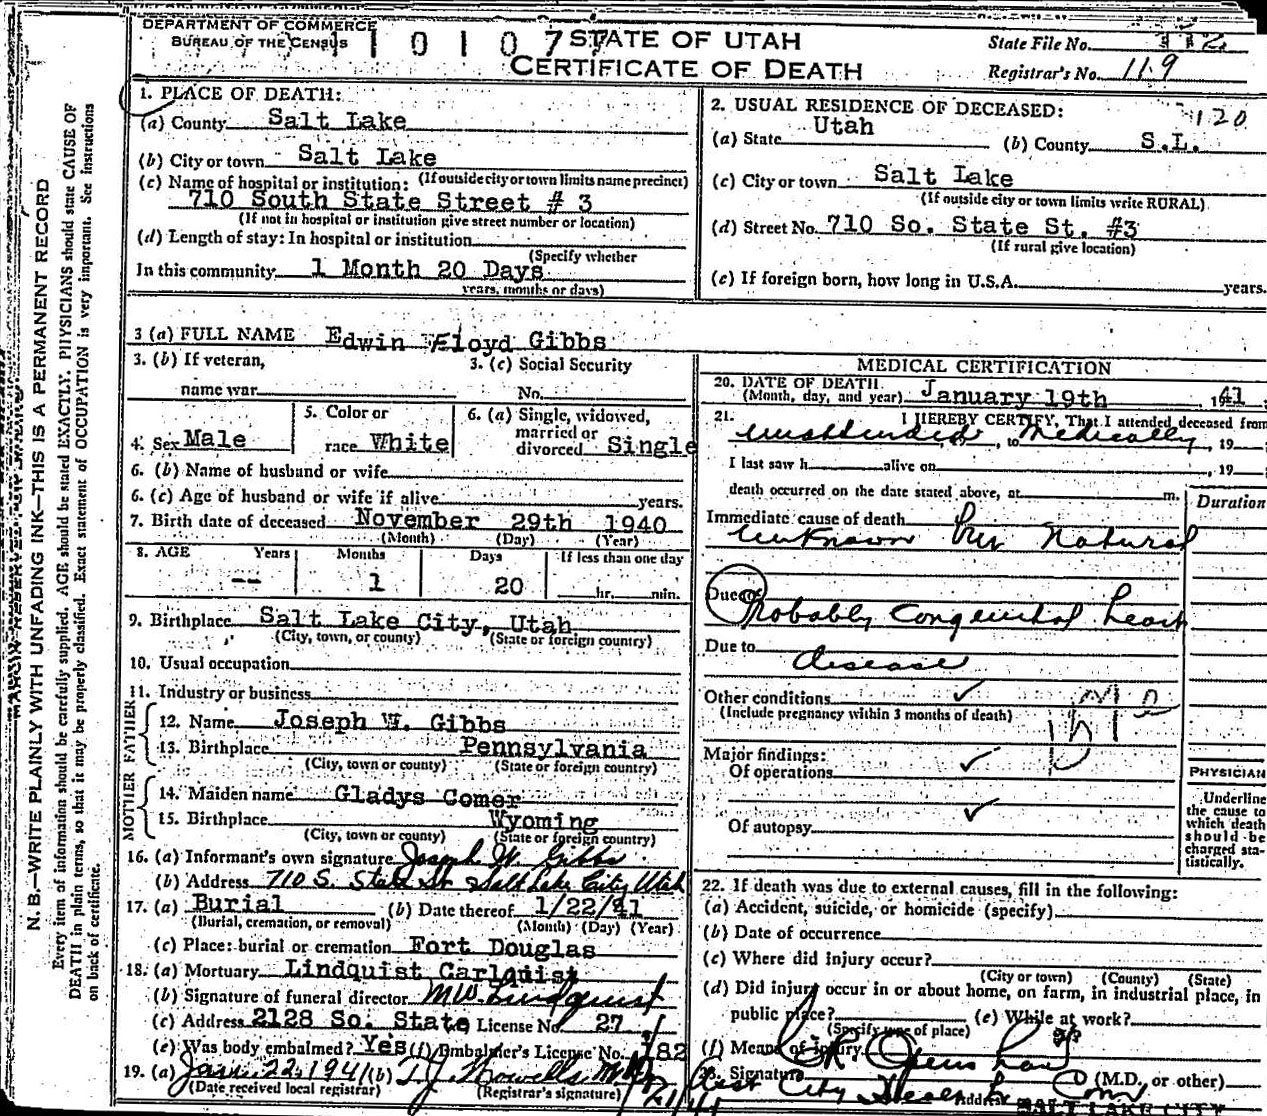 DEPARTMENT OF COMMERCE
BUREAU OF THE CENSUS
1 0 1 0 7
STATE OF UTAH
CERTIFICATE OF DEATH
State File No.
Registrar's No. 119
120
N. B.—WRITE PLAINLY WITH UNFADING INK—THIS IS A PERMANENT RECORD
Every item of information should be carefully supplied. AGE should be stated EXACTLY. PHYSICIANS should state CAUSE OF
DEATH in plain terms, so that it may be properly classified. Exact statement of OCCUPATION is very important. See instructions
on back of certificate.
1. PLACE OF DEATH:
(a) County Salt Lake
(b) City or town Salt Lake
(If outside city or town limits name precinct)
(c) Name of hospital or institution:
710 South State Street # 3
(If not in hospital or institution give street number or location)
(d) Length of stay: In hospital or institution
(Specify whether
In this community 1 Month 20 Days
years, months or days)
2. USUAL RESIDENCE OF DECEASED:
(a) State Utah (b) County S.L.
(c) City or town Salt Lake
(If outside city or town limits write RURAL)
(d) Street No. 710 So. State St. #3
(If rural give location)
(e) If foreign born, how long in U.S.A. years.
3 (a) FULL NAME Edwin Floyd Gibbs
3. (b) If veteran,
name war
3. (c) Social Security
No.
4. Sex Male
5. Color or
race White
6. (a) Single, widowed,
married or
divorced Single
6. (b) Name of husband or wife
6. (c) Age of husband or wife if alive years.
7. Birth date of deceased November 29th 1940
(Month) (Day) (Year)
8. AGE Years Months Days If less than one day
-- 1 20 hr. min.
9. Birthplace Salt Lake City, Utah
(City, town, or county) (State or foreign country)
10. Usual occupation
11. Industry or business
FATHER
12. Name Joseph W. Gibbs
13. Birthplace Pennsylvania
(City, town or county) (State or foreign country)
MOTHER
14. Maiden name Gladys Comer
15. Birthplace Wyoming
(City, town or county) (State or foreign country)
16. (a) Informant's own signature Joseph W. Gibbs
(b) Address 710 S. State St Salt Lake City Utah
17. (a) Burial (b) Date thereof 1/22/41
(Burial, cremation, or removal) (Month) (Day) (Year)
(c) Place: burial or cremation Fort Douglas
18. (a) Mortuary Lindquist Carlquist
(b) Signature of funeral director M W Lindquist
(c) Address 2128 So. State License No. 27
(e) Was body embalmed? Yes (f) Embalmer's License No. 182
19. (a) Jan. 22, 1941 (b) T. J. Howells
(Date received local registrar) (Registrar's signature)
MEDICAL CERTIFICATION
20. DATE OF DEATH
(Month, day, and year) January 19th, 1941
21. I HEREBY CERTIFY, That I attended deceased from
unattended, to Medically, 19
I last saw h alive on , 19
death occurred on the date stated above, at m.
Duration
Immediate cause of death
Unknown but Natural
Due to
Probably Congenital heart
Due to disease
Other conditions
(Include pregnancy within 3 months of death)
Major findings:
Of operations
Of autopsy
PHYSICIAN
Underline
the cause to
which death
should be
charged sta-
tistically.
22. If death was due to external causes, fill in the following:
(a) Accident, suicide, or homicide (specify)
(b) Date of occurrence
(c) Where did injury occur?
(City or town) (County) (State)
(d) Did injury occur in or about home, on farm, in industrial place, in
public place? (e) While at work?
(Specify type of place)
(f) Means of injury
23. Signature (M.D. or other)
City Health
Address SALT LAKE CITY